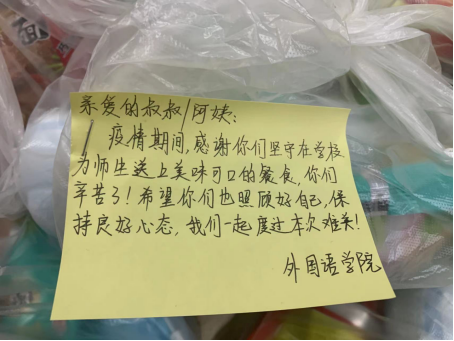 面
亲爱的叔叔/阿姨:
疫情期间,感谢你们坚守在学校,
为师生送上美味可口的餐食,你们
辛苦了!希望你们也照顾好自己,保
持良好心态,我们一起度过本次难关!
外国语学院